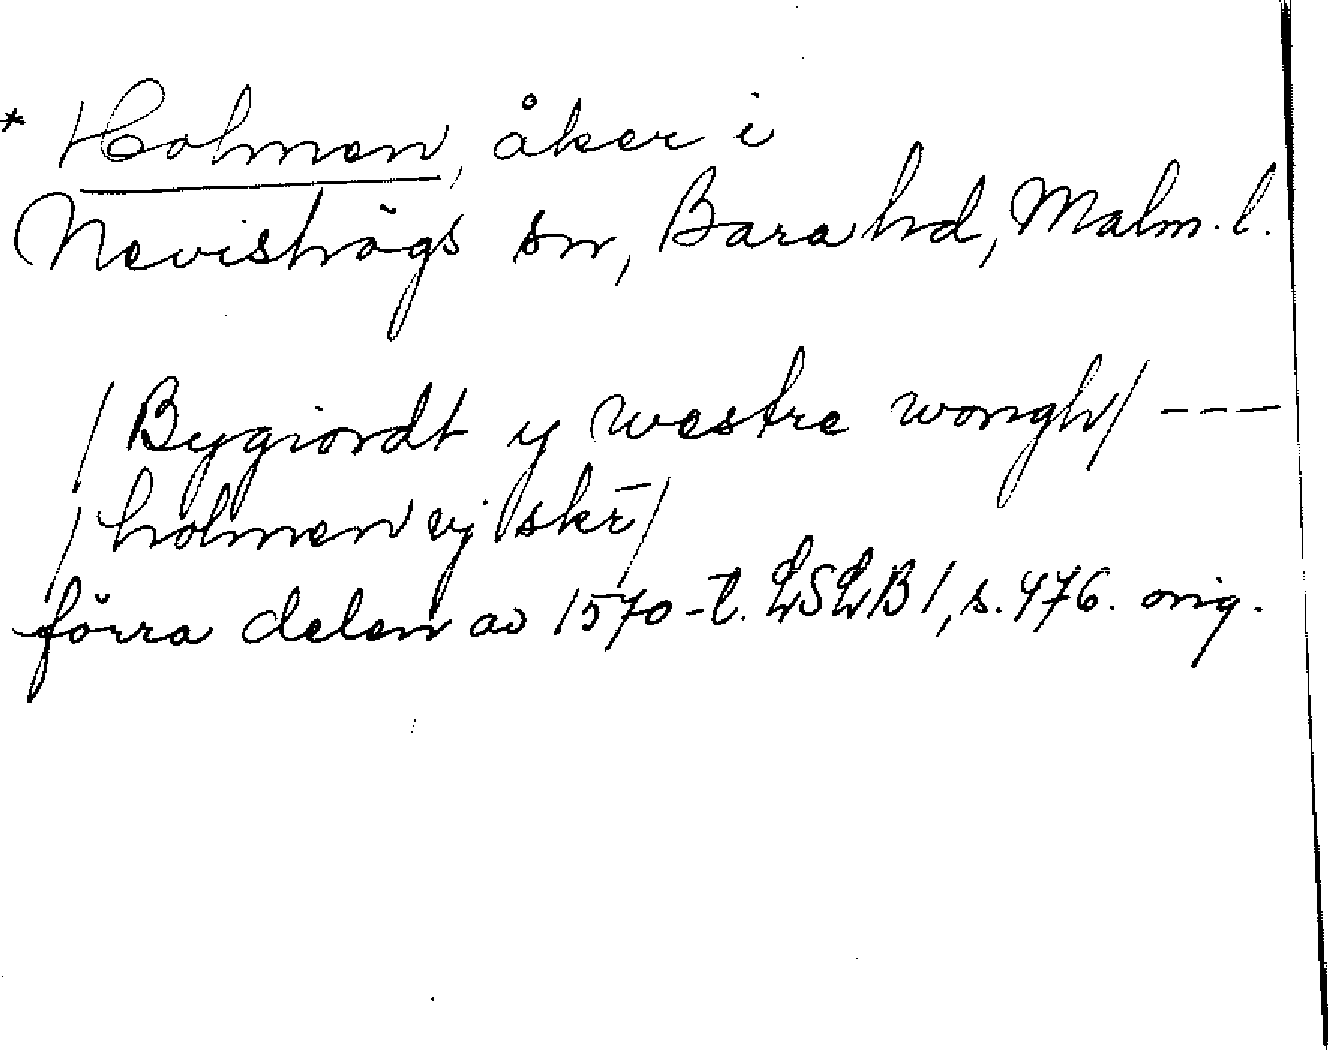 * Holmen, åker i
Nevishögs sn, Bara hd, Malm. l.
/Bygiordt y westre wongh/ ---
/holmen vj skr̄/
förra delen av 1570-t. LSLB 1, s. 476. orig.